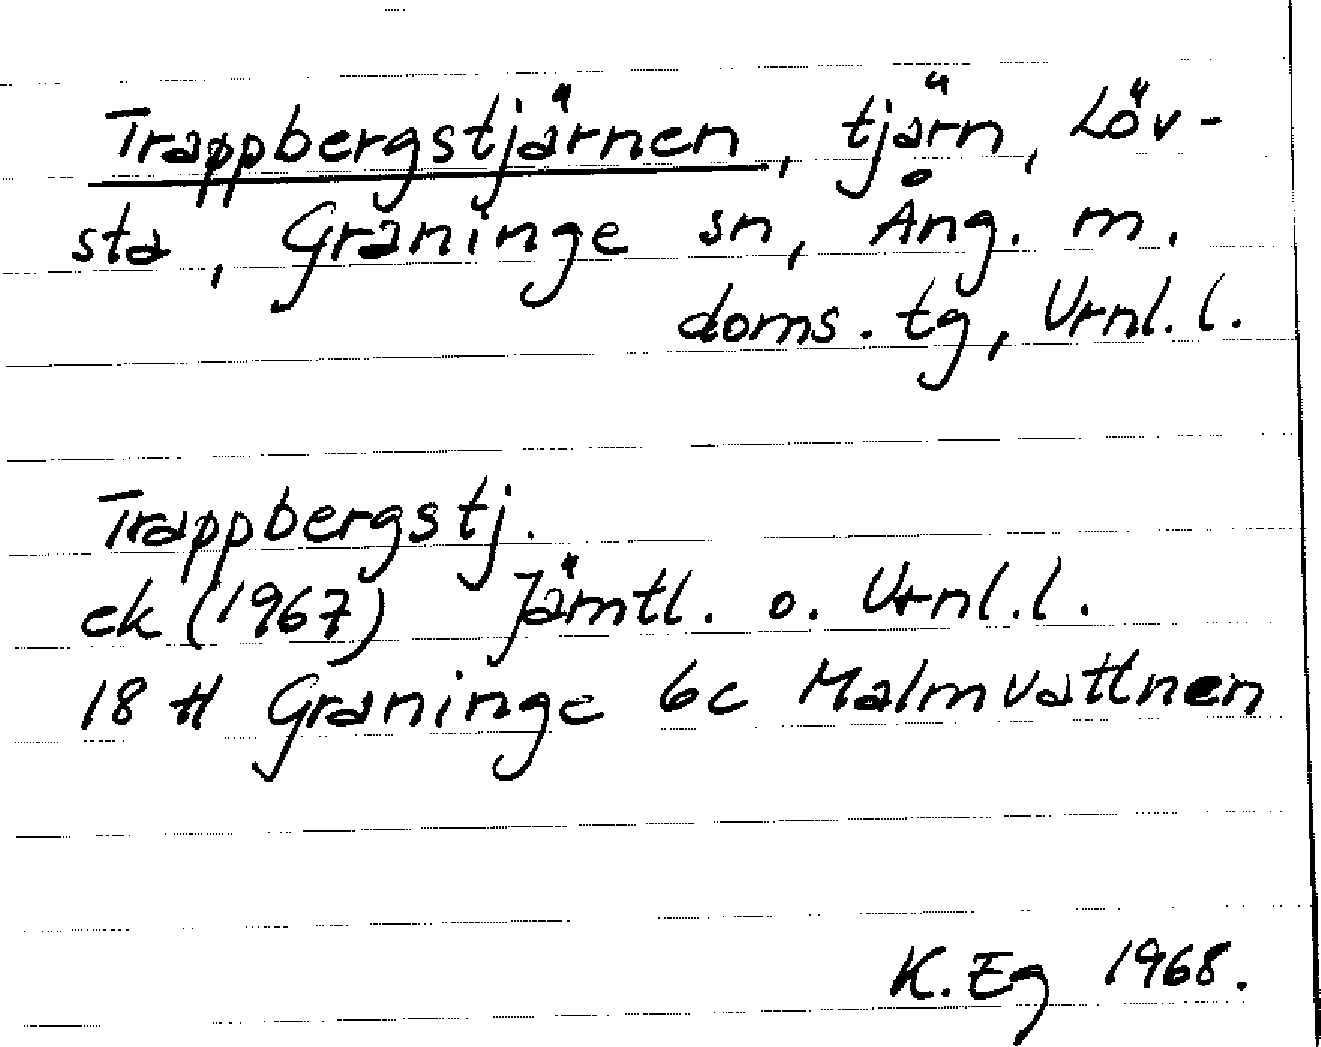 Trappbergstjärnen, tjärn, Löv-
sta, Graninge sn, Ång. m.
doms. tg, Vrnl. l.
Trappbergstj.
ek (1967) Jämtl. o. Vrnl. l.
18 H Graninge 6c Malmvattnen
K. Eg 1968.